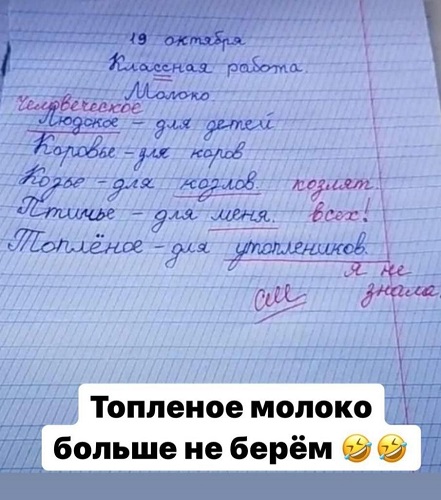 19 октября
Классная работа.
Молоко
Человеческое
Людское – для детей
Коровье – для коров
Козье – для козлов. козлят.
Птичье – для меня. всех!
Топлёное – для утоплеников.
Я не
знала.
см
Топленое молоко
больше не берём 🤣🤣